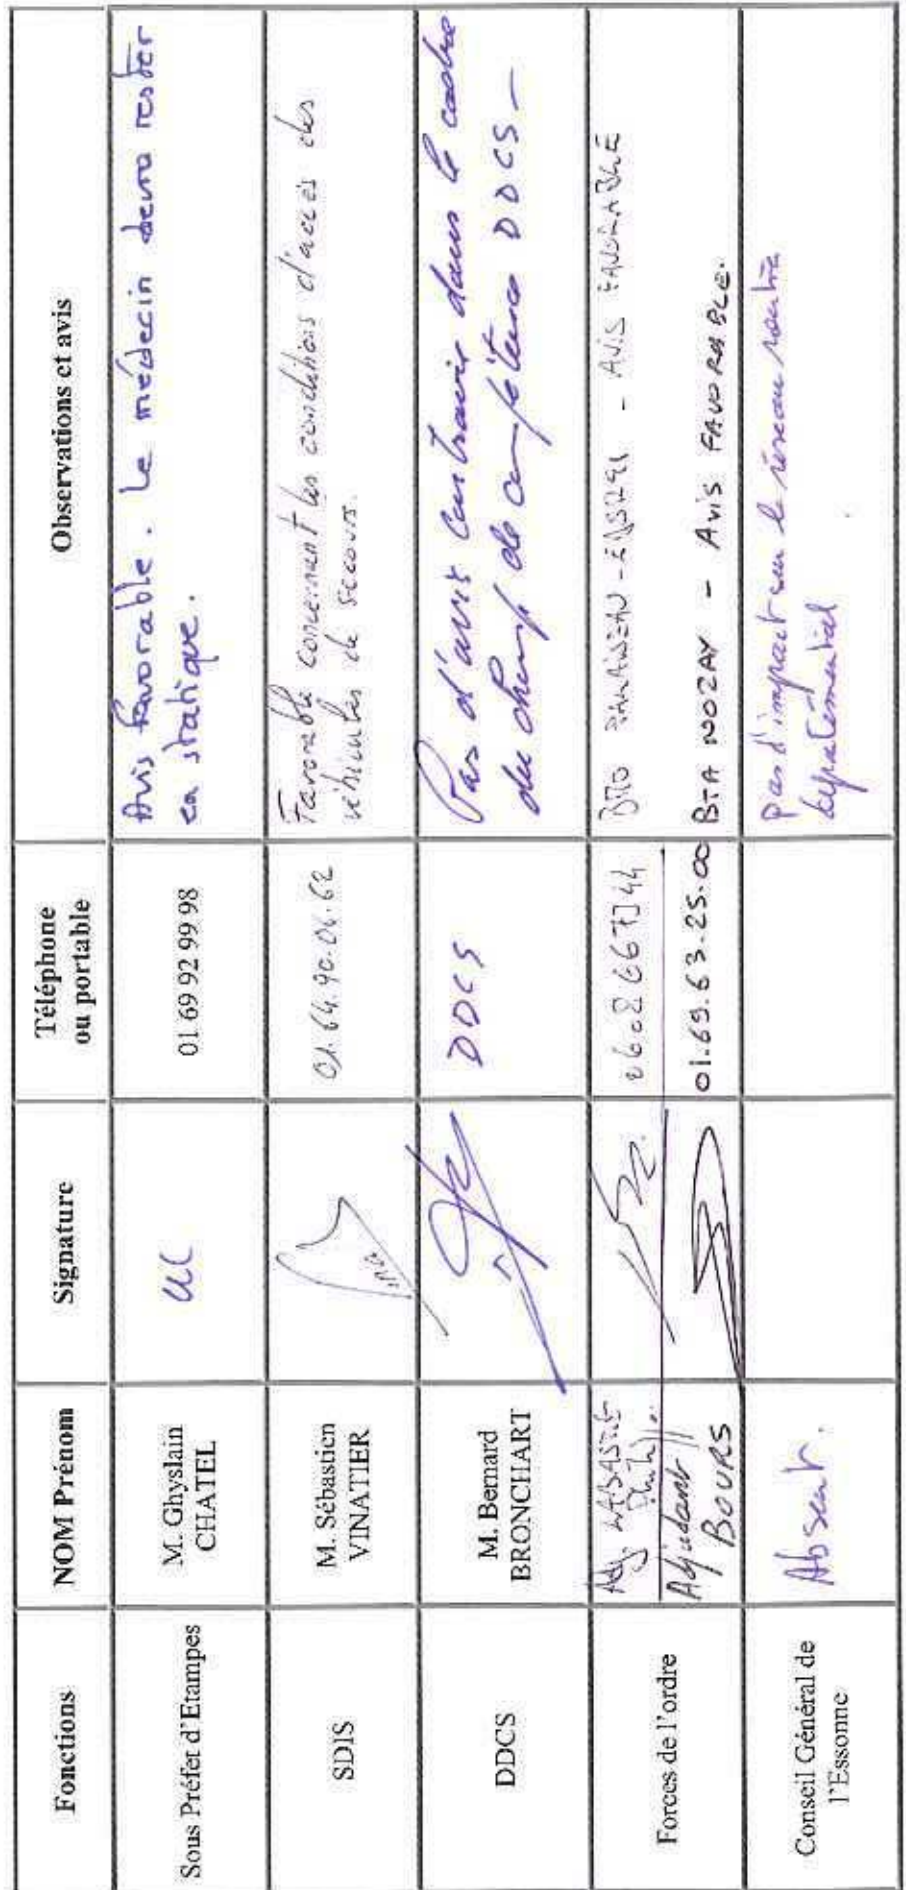 Fonctions
NOM Prénom
Signature
Téléphone
ou portable
Observations et avis
Sous Préfet d'Etampes
M. Ghyslain
CHATEL
01 69 92 99 98
Avis favorable. Le médecin devra rester
en statique.
SDIS
M. Sébastien
VINATIER
01.64.90.06.62
Favorable concernant les conditions d'accès des
véhicules de secours.
DDCS
M. Bernard
BRONCHART
DDCS
Pas d'avis contraire dans le cadre
du champ de compétence DDCS -
Forces de l'ordre
Adj.
- AVIS FAVORABLE
Adjudant
BOURS
01.69.63.25.00
BTA NOZAY - AVIS FAVORABLE.
Conseil Général de
l'Essonne
Absent.
Pas d'impact sur le réseau routier
départemental